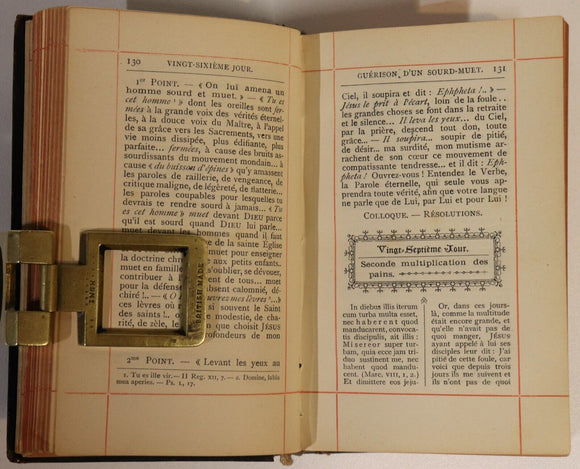 130 VINGT-SIXIÈME JOUR.
1er POINT. — « On lui amena un
homme sourd et muet. » — « Tu es
cet homme » dont les oreilles sont fer-
mées à la grande voix des vérités éternel-
les, à la douce voix du Maître, à l'appel
de sa grâce vers les Sacrements, vers une
vie moins dissipée, plus édifiante, plus
parfaite... fermées, à cause des bruits as-
sourdissants du mouvement mondain... à
cause « du buisson d'épines » qu'y amassent
les paroles de raillerie, de vengeance, de
critique maligne, de légèreté, de flatterie...
les paroles coupables pour lesquelles tu
devrais te rendre sourd à jamais... « Tu
es cet homme » muet devant DIEU parce
ent devant DIEU quand il
homme muet quand il faut
de la sainte Église
la doctrine chré
muet en famille
contribuer à
pour la défense
bsent calomnié, dé-
chiré !... — « O
uvre mes lèvres »...
ô Sain
modestie, de cha-
de zèle, le
on que choisit JÉSUS
rofondeurs de mon
2me POINT. — « Levant les yeux au
1. Tu es ille vir. — II Reg. XII, 7. — 2. Domine, labia
mea aperies. — Ps. 1, 17.
HOME
BRITISH MADE
GUÉRISON D'UN SOURD-MUET. 131
Ciel, il soupira et dit : Ephpheta !.. » —
Jésus le prit à l'écart, loin de la foule...
les grandes choses se font dans la retraite
et le silence... Il leva les yeux... du Ciel,
par la prière, descend tout don, toute
grâce... — Il soupira... soupir de pitié,
de désir... ma surdité, mon mutisme arra-
chent de son cœur ce mouvement de
compatissante tendresse... et il dit : Eph-
pheta ! Ouvrez-vous ! Entendez le Verbe,
la Parole éternelle, qui seule vous ap-
prendra toute vérité, afin que votre langue
ne parle que de Lui, par Lui et pour Lui !
COLLOQUE. — RÉSOLUTIONS.
Vingt-Septième Jour.
Seconde multiplication des
pains.
In diebus illis iterum
cum turba multa esset,
nec haberent quod
manducarent, convoca-
tis discipulis, ait illis :
Misereor super tur-
bam, quia ecce jam tri-
duo sustinent me, nec
habent quod mandu-
cent. (Marc. VIII, 1, 2.)
Et dimittere eos jeju-
Or, dans ces jours-
là, comme la multitude
était encore grande, et
qu'elle n'avait pas de
quoi manger, JÉSUS
ayant appelé à lui ses
disciples leur dit : J'ai
pitié de cette foule, car
voici que depuis trois
jours ils me suivent et
ils n'ont pas de quoi